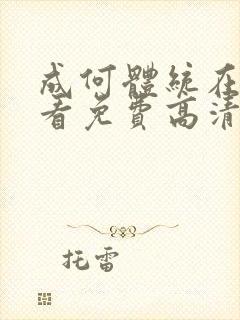 成何體統在
看免費高清
托雷